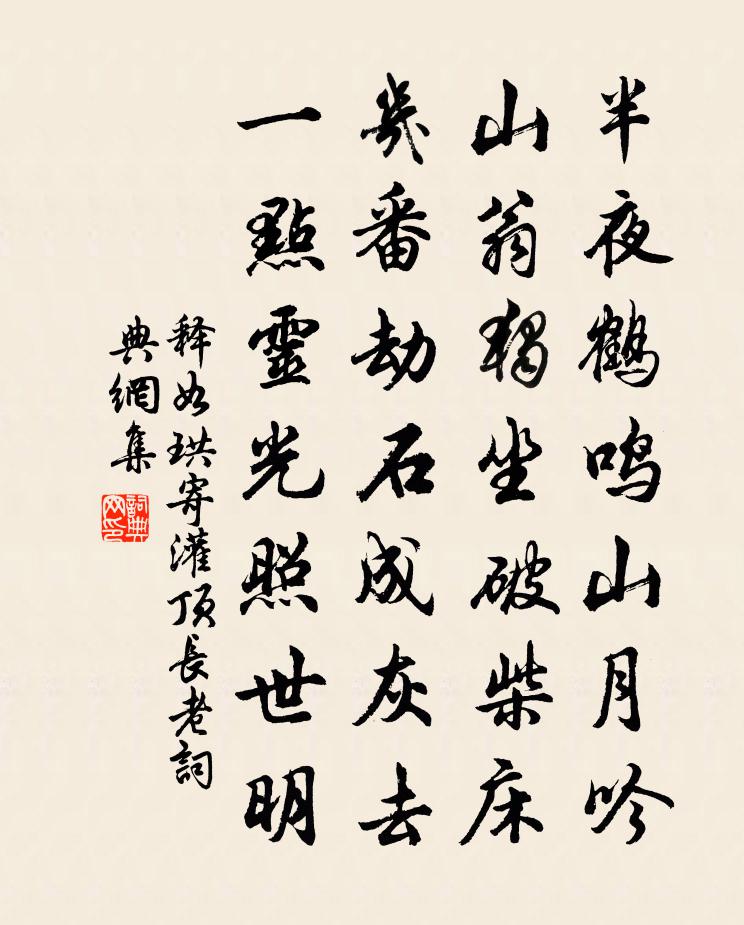 半夜鶴鳴山月吟
山翁獨坐破柴床
幾番劫石成灰去
一點靈光照世明
释如珙寄灌顶長老詞
典網集
詞典網印